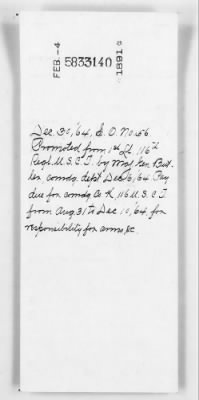 FEB.-4
5833140
1891
Dec. 30, '64, S. O. No. 56
Promoted from 1st Lt. 116th
Regt. U. S. C. T. by Maj Gen But-
ler comdg. dept Dec 6, 64. Pay
due for comdg Co K, 116 U. S. C. T
from Aug. 31 to Dec. 10, 64, for
responsibility for arms, &c